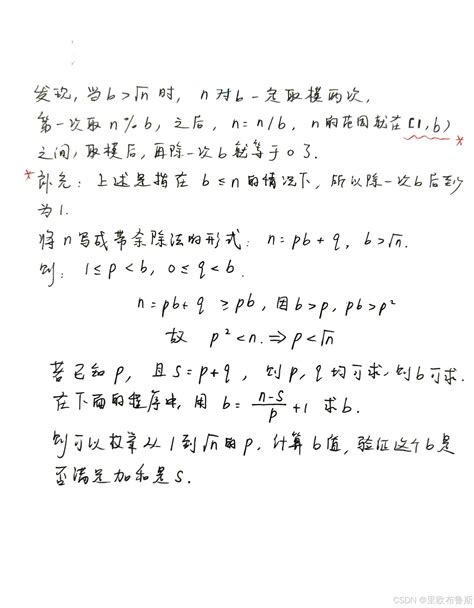 发现,当b>√n时, n对b一定取模两次,
第一次取n%b,之后, n=n/b, n的范围就在[1,b)
之间,取模后,再除一次b就等于0了.
*补充:上述是指在b≤n的情况下,所以除一次b后至少
为1.
将n写成带余除法的形式: n=pb+q, b>√n.
则: 1≤p<b, 0≤q<b.
n=pb+q ≥pb, 因b>p, pb>p²
故 p²<n.⇒p<√n
若已知p, 且s=p+q, 则p,q均可求,则b可求.
在下面的程序中,用 b=(n-s)/p+1 求b.
则可以枚举从1到√n的p,计算b值,验证这个b是
否满足加和是s.
CSDN @里欧布鲁斯